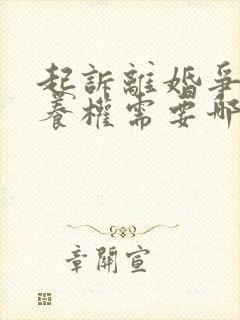 起訴離婚爭
養權需要哪
章開宣